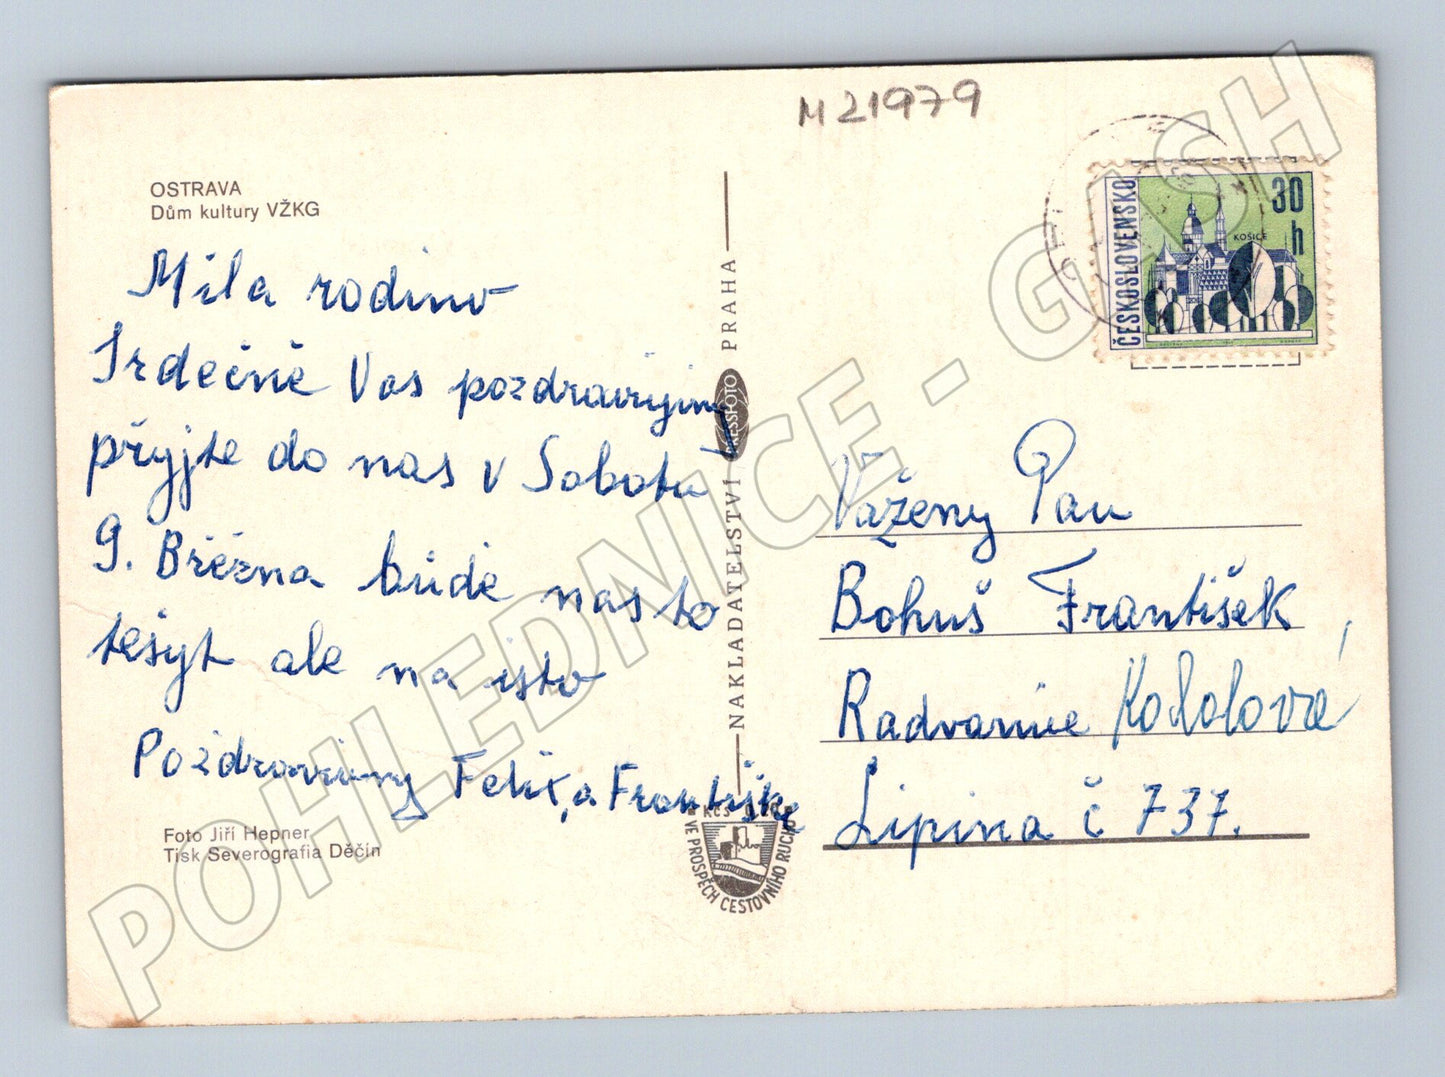 M 21979
OSTRAVA
Dům kultury VŽKG
Mila rodino
Srdečně Vas pozdravujimy
přyjte do nas v Sobotu
9. Března bude nas to
tešyt ale na isto
Pozdravujimy Felix, a Františka
Foto Jiří Hepner
Tisk Severografia Děčín
NAKLADATELSTVÍ PRESSFOTO PRAHA
Kčs
VE PROSPĚCH CESTOVNÍHO RUCHU
ČESKOSLOVENSKO
30 h
KOŠICE
Važeny Pan
Bohuš František
Radvanice
Lipina č 737.
POHLEDNICE - GASH